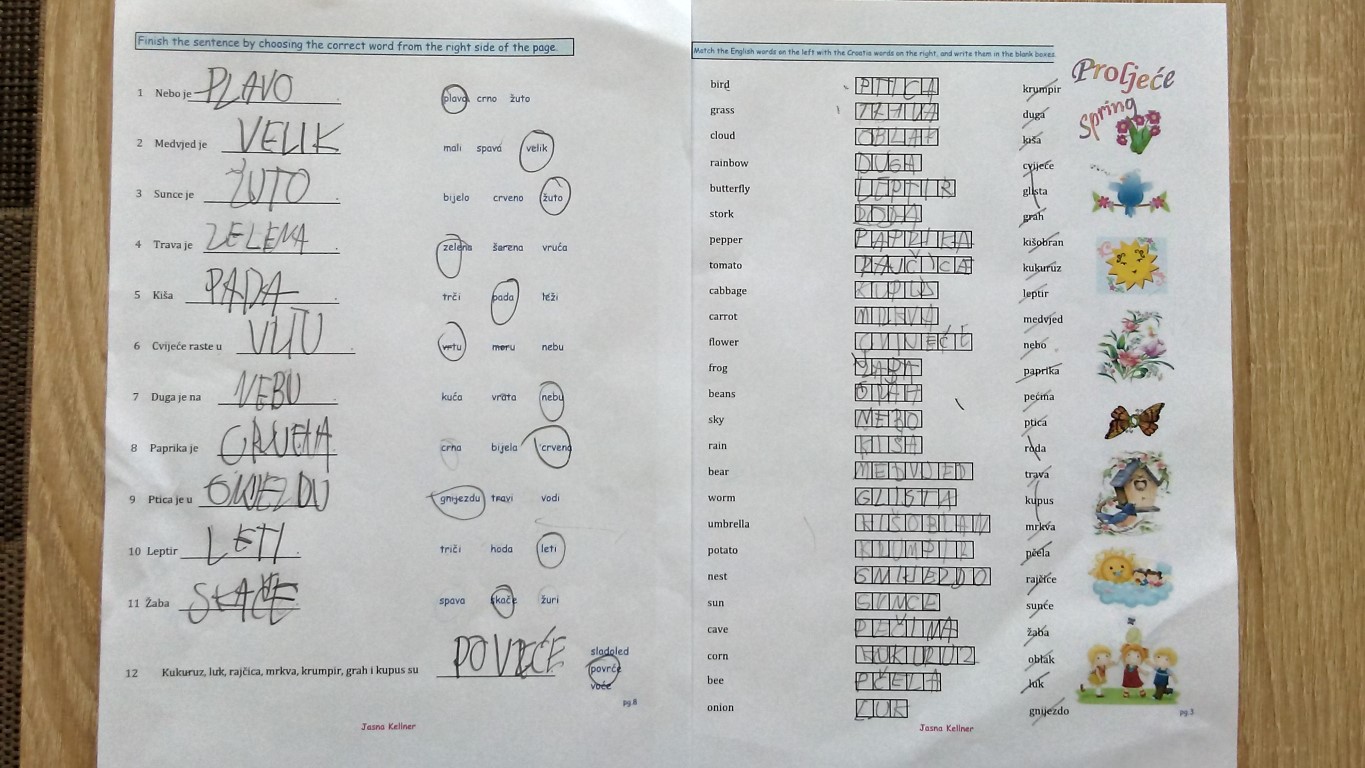 Finish the sentence by choosing the correct word from the right side of the page.
1 Nebo je PLAVO. plavo crno žuto
2 Medvjed je VELIK. mali spava velik
3 Sunce je ŽUTO. bijelo crveno žuto
4 Trava je ZELENA. zelena šarena vruća
5 Kiša PADA. trči pada leži
6 Cvijeće raste u VRTU. vrtu moru nebu
7 Duga je na NEBU. kuća vrata nebu
8 Paprika je CRVENA. crna bijela crvena
9 Ptica je u GNIJEZDU. gnijezdu travi vodi
10 Leptir LETI. triči hoda leti
11 Žaba SKAČE. spava skače žuri
12 Kukuruz, luk, rajčica, mrkva, krumpir, grah i kupus su POVRĆE. sladoled
povrće
voće
pg.8
Jasna Kellner
Match the English words on the left with the Croatia words on the right, and write them in the blank boxes.
Proljeće
Spring
bird PTICA krumpir
grass TRAVA duga
cloud OBLAK kiša
rainbow DUGA cvijeće
butterfly LEPTIR glista
stork RODA grah
pepper PAPRIKA kišobran
tomato RAJČICA kukuruz
cabbage KUPUS leptir
carrot MRKVA medvjed
flower CVIJEĆE nebo
frog ŽABA paprika
beans GRAH pećina
sky NEBO ptica
rain KIŠA roda
bear MEDVJED trava
worm GLISTA kupus
umbrella KIŠOBRAN mrkva
potato KRUMPIR pčela
nest GNIJEZDO rajčice
sun SUNCE sunce
cave PEČINA žaba
corn KUKURUZ oblak
bee PČELA luk
onion LUK gnijezdo
pg.3
Jasna Kellner